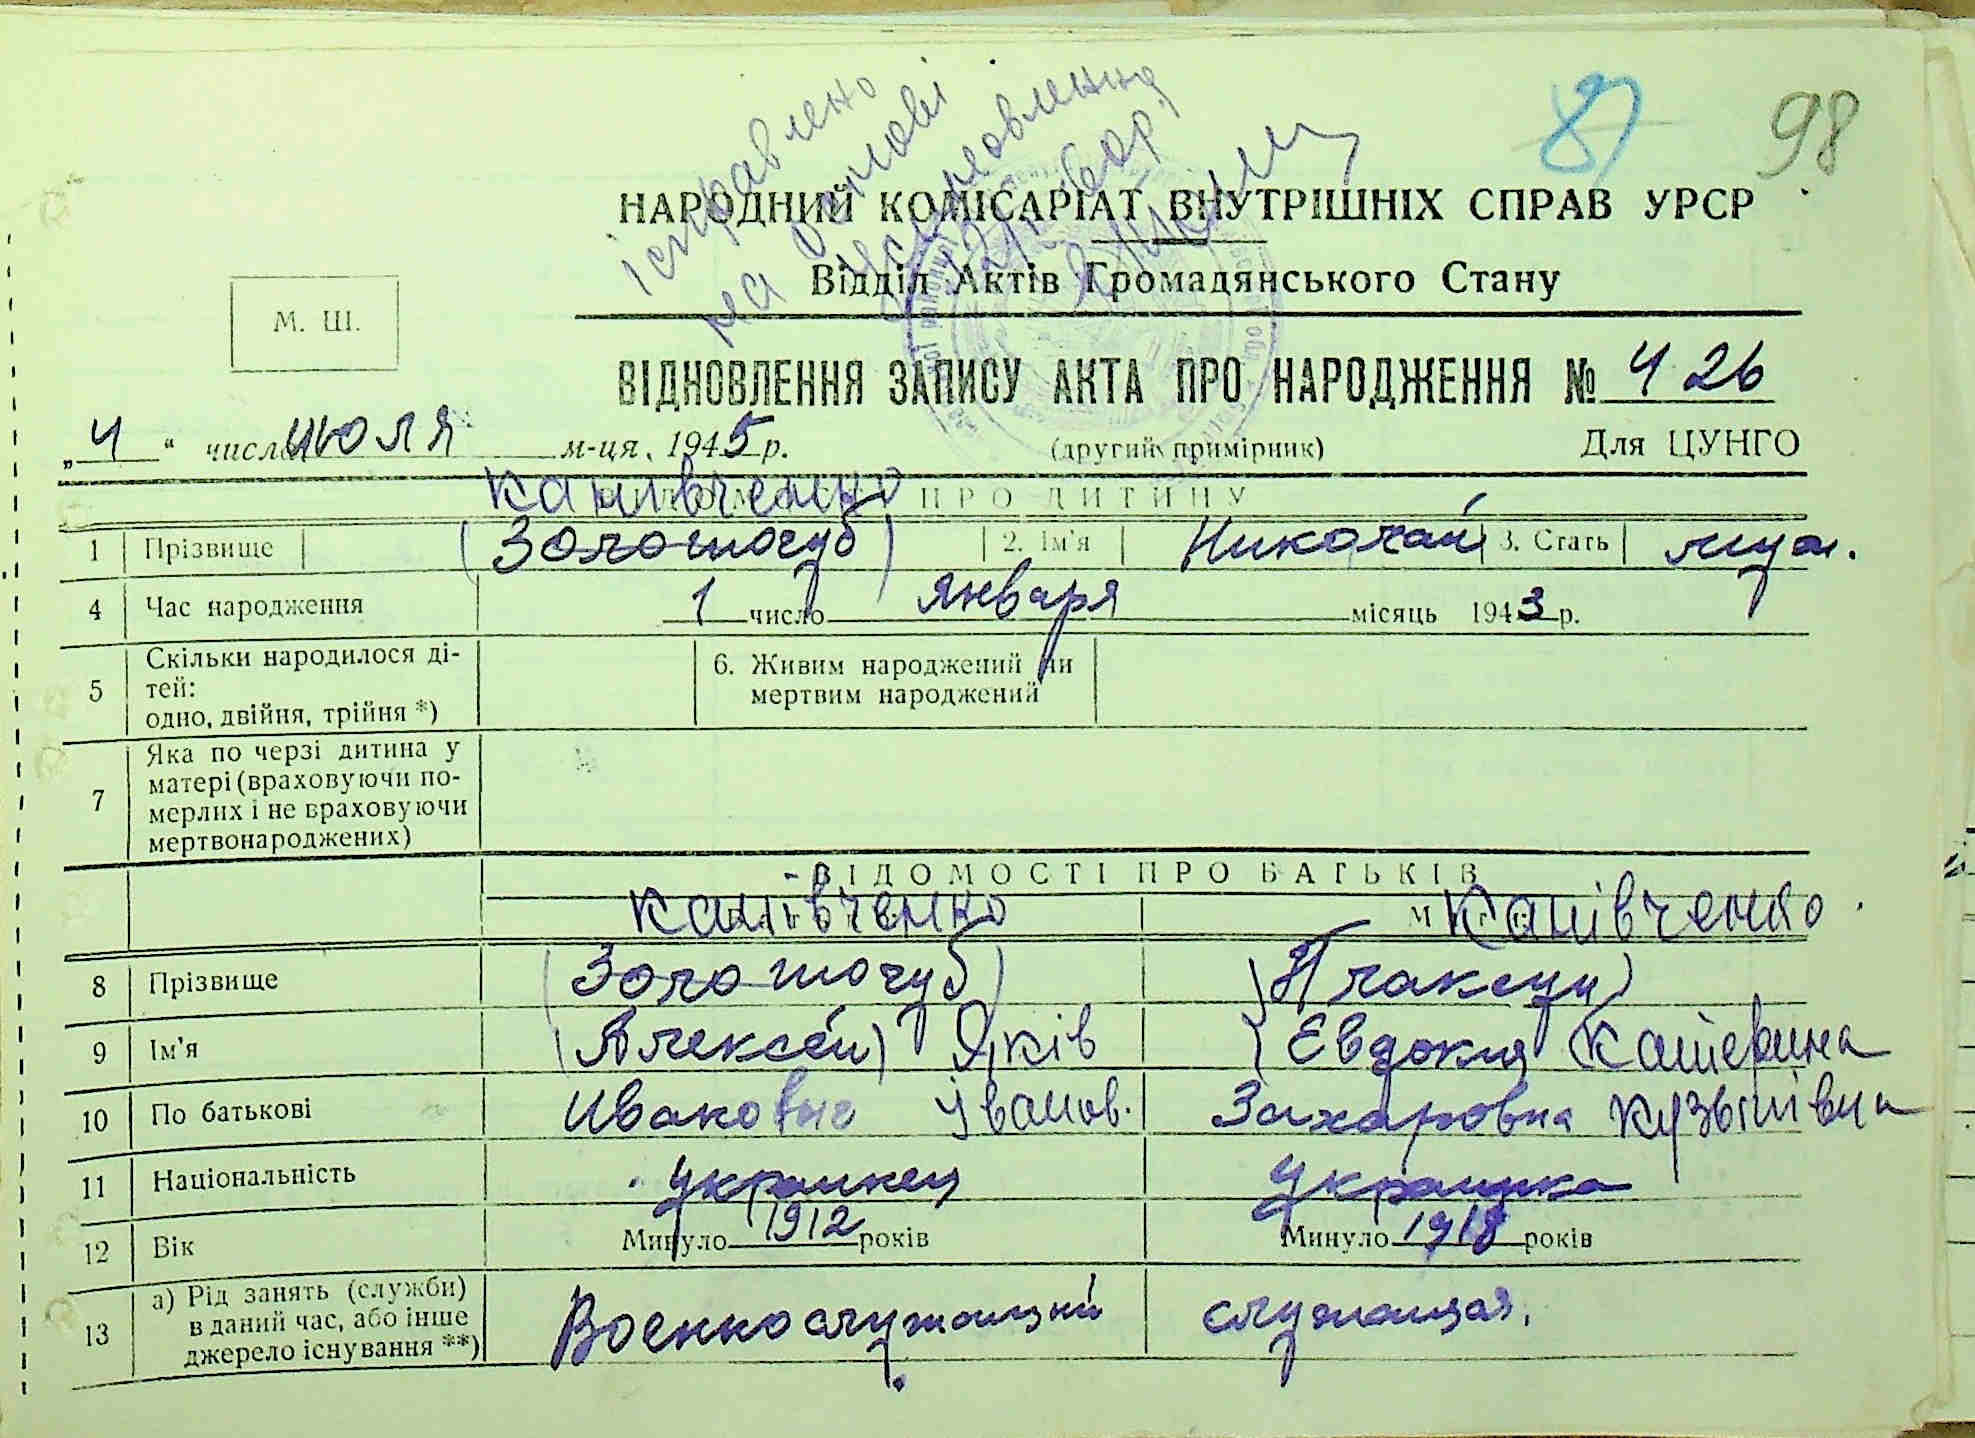 98
87
ісправлено
на основі
установлення
НАРОДНИЙ КОМІСАРІАТ ВНУТРІШНІХ СПРАВ УРСР
Відділ Актів Громадянського Стану
М. Ш.
ВІДНОВЛЕННЯ ЗАПИСУ АКТА ПРО НАРОДЖЕННЯ № 426
„4“ число июля м-ця, 1945 р. (другий примірник) Для ЦУНГО
Канівченко
ПРО ДИТИНУ
1 Прізвище (Золоточуб) 2. Ім'я Николай 3. Стать муж.
4 Час народження 1 число января місяць 1943 р.
5 Скільки народилося ді-
тей:
одно, двійня, трійня *)
6. Живим народжений чи
мертвим народжений
7 Яка по черзі дитина у
матері (враховуючи по-
мерлих і не враховуючи
мертвонароджених)
ВІДОМОСТІ ПРО БАТЬКІВ
Канівченко Канівченко
8 Прізвище (Золоточуб)
9 Ім'я (Алексей) Яків (Евдокия Катерина
10 По батькові Иванович Іванов. Захаровна Кузьмівна
11 Національність украинец украинка
12 Вік Минуло 1912 років Минуло 1918 років
13 а) Рід занять (служби)
в даний час, або інше
джерело існування **)
Военнослужащий служащая.